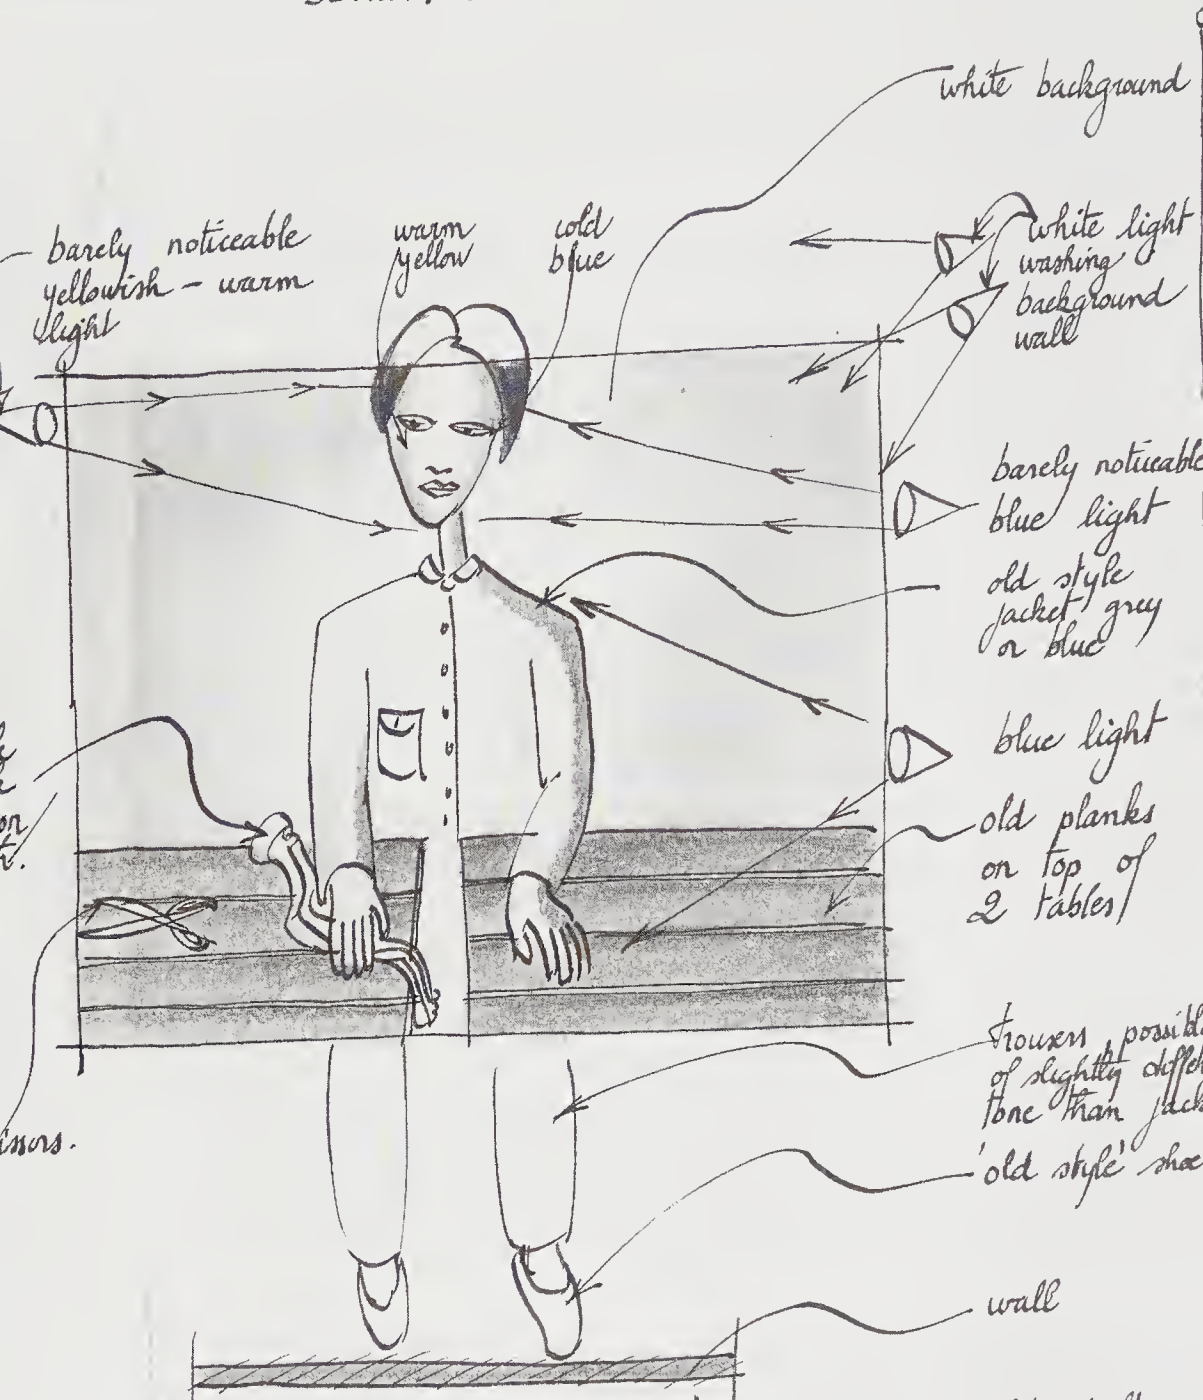 white background
barely noticeable
yellowish - warm
light
warm
yellow
cold
blue
white light
washing
background
wall
barely noticeable
blue light
old style
jacket grey
or blue
blue light
old planks
on top of
2 tables
trousers, possibl
of slightly differ
tone than jack
issors.
'old style' shoe
wall